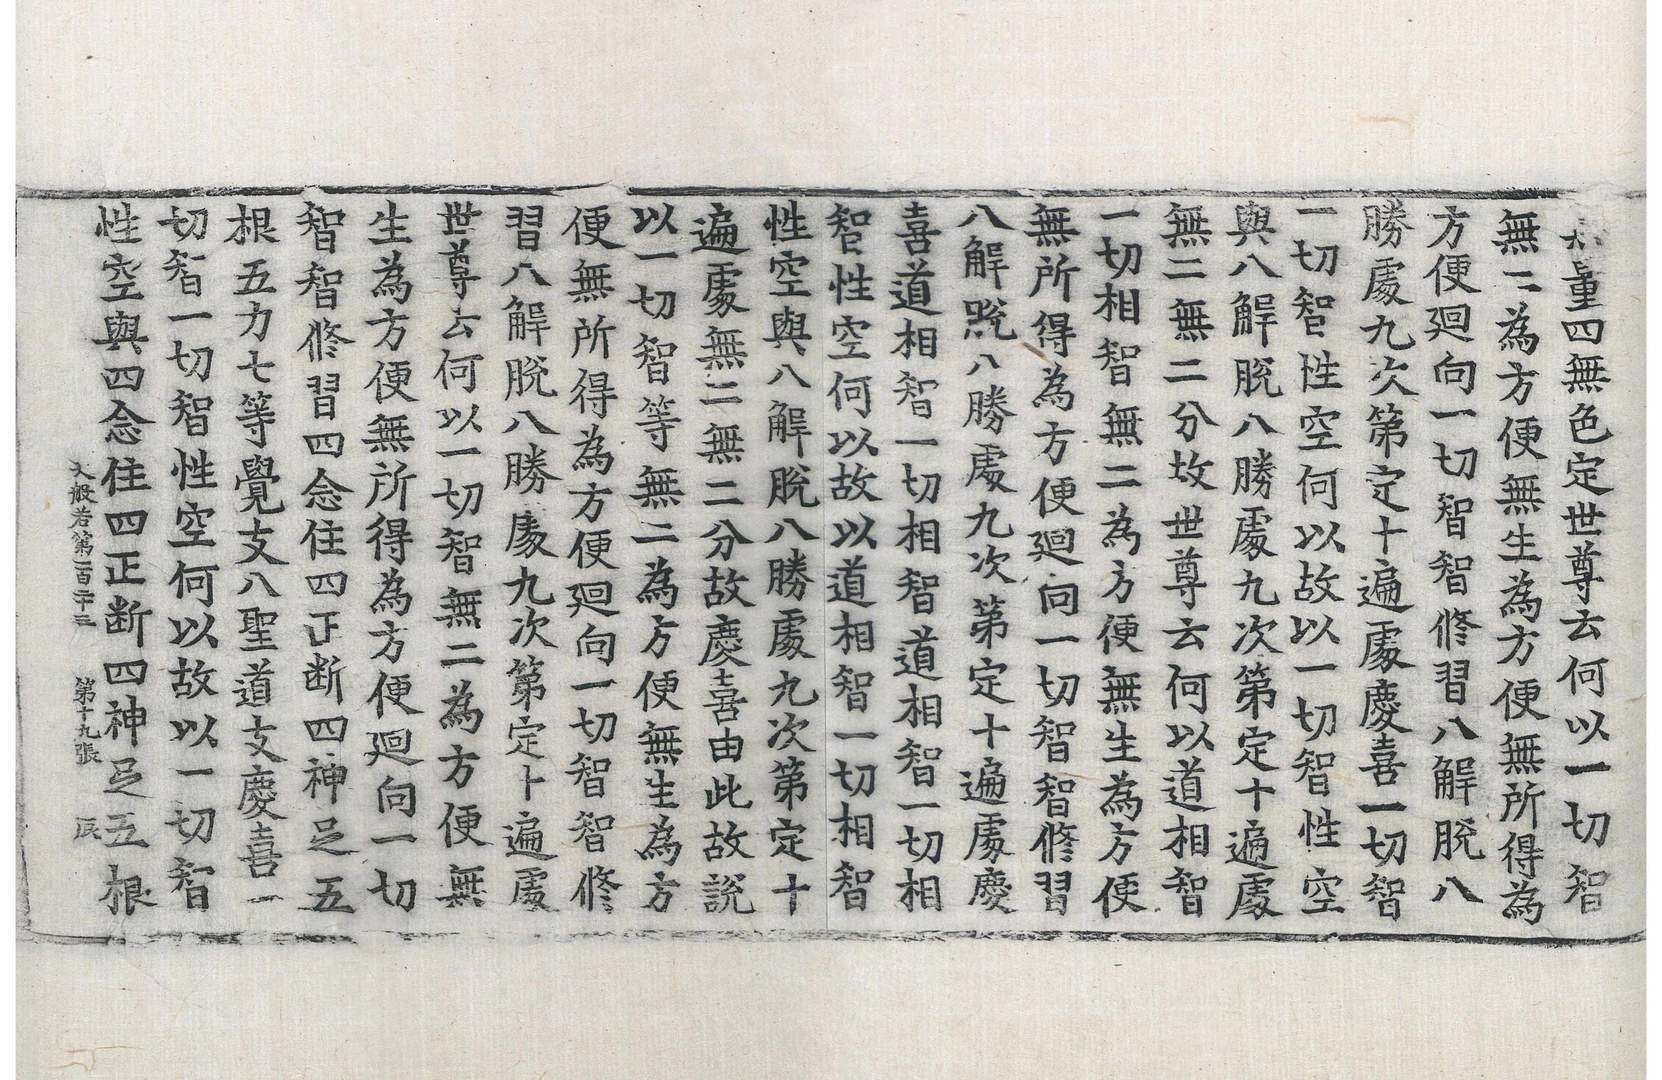 量四無色定世尊云何以一切智智
無二為方便無生為方便無所得為
方便迴向一切智智修習八解脫八
勝處九次第定十遍處慶喜一切智
一切智性空何以故以一切智智性空
與八解脫八勝處九次第定十遍處
無二無二分故世尊云何以道相智
一切相智無二為方便無生為方便
無所得為方便迴向一切智智修習
八解脫八勝處九次第定十遍處慶
喜道相智一切相智道相智一切相
智性空何以故以道相智一切相智
性空與八解脫八勝處九次第定十
遍處無二無二分故慶喜由此故說
以一切智等無二為方便無生為方
便無所得為方便迴向一切智智修
習八解脫八勝處九次第定十遍處
世尊云何以一切智無二為方便無
生為方便無所得為方便迴向一切
智智修習四念住四正断四神足五
根五力七等覺支八聖道支慶喜一
切智一切智性空何以故以一切智
性空與四念住四正断四神足五根
大般若第一百二十三 第十九張 辰